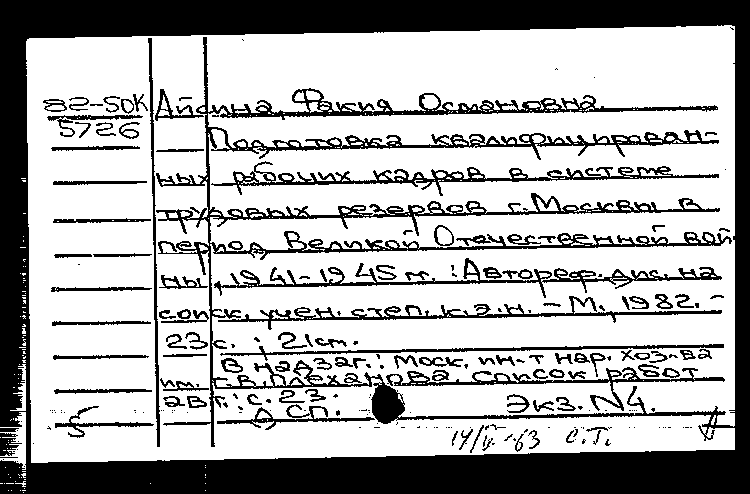 82-5OK Айсина, Факия Османовна.
5726 Подготовка квалифицирован-
ных рабочих кадров в системе
трудовых резервов г. Москвы в
период Великой Отечественной вой-
ны, 1941-1945 гг. : Автореф. дис. на
соиск. учен. степ. к.э.н. - М., 1982. -
23 с. ; 21 см.
В надзаг.: Моск. ин-т нар. хоз-ва
им. Г.В. Плеханова. Список работ
авт.: с. 23.
ДСП. Экз. №4.
С.Т.